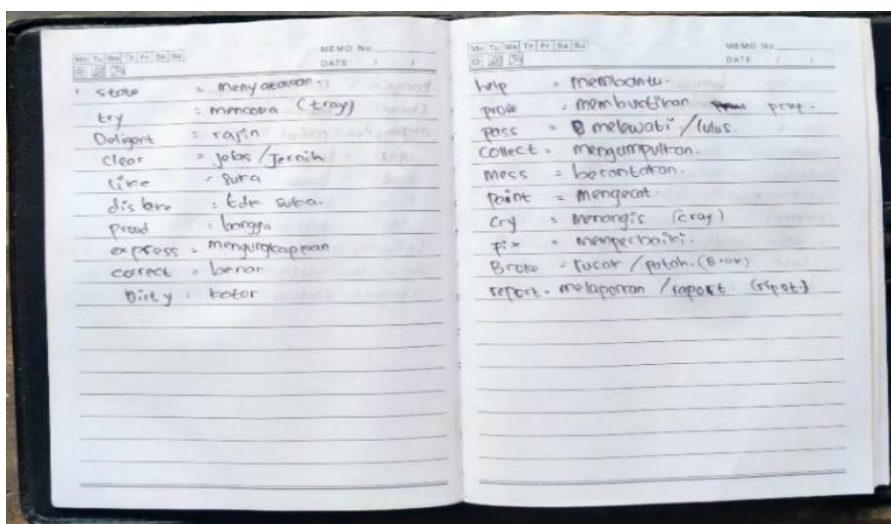 Mo Tu We Th Fr Sa Su
MEMO No.
DATE / /
state = menyatakan.
try = mencoba (tray)
Deligent = rajin
clear = jelas / Jernih
like = suka
dislike = tdk suka.
proud = bangga
express = mengungkapkan
correct = benar
Dirty = kotor
Mo Tu We Th Fr Sa Su
MEMO No.
DATE / /
help = membantu.
prove = membuktikan pruf.
pass = melewati / lulus.
collect = mengumpulkan.
mess = berantakan.
paint = mengecat.
cry = menangis (cray)
fix = memperbaiki.
Broke = rusak / patah. (Brok)
report = melaporkan / raport. (ripot.)